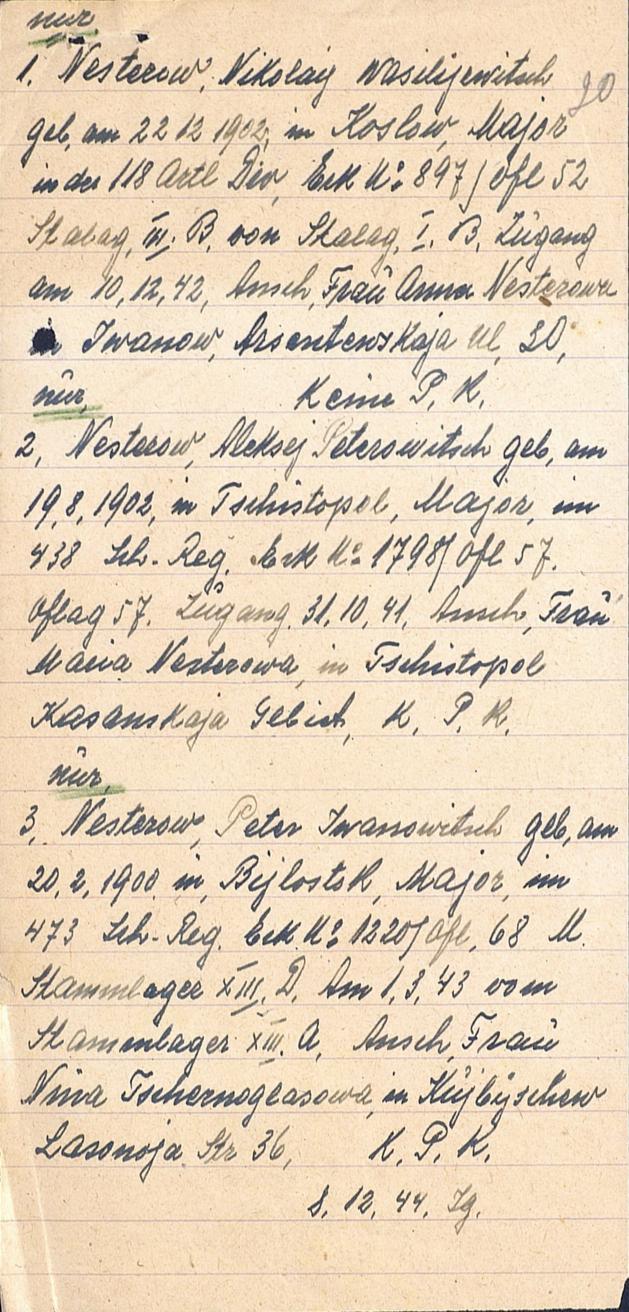 nur
1, Nesterow, Nikolaij Wasilijewitsch
20
geb, am 22 12 1902, in Koslow, Major
in der 118 Artl Div, Erk N° 897/Ofl 52
Stalag, III. B, von Stalag, I. B, Zugang
am 10,12,42, Ansch, Frau Anna Nesterowa
in Iwanow, Arsentewskaja Ul, 30,
nur, Keine P, K,
2, Nesterow, Aleksej Peterowitsch geb, am
19,8,1902, in Tschistopol, Major, im
438 Sch-Reg. Erk N° 1798/Ofl 57.
Oflag 57. Zugang, 31,10,41, Ansch, Frau
Maria Nesterowa, in Tschistopol
Kasanskaja Gebiet, K, P, K,
nur,
3, Nesterow, Peter Iwanowitsch geb, am
20,2,1900 in, Bijlostok, Major, im
473 Sch-Reg. Erk N° 1220/Ofl, 68 M.
Stammlager XIII, D, Am 1,3,43 vom
Stammlager XIII. A, Ansch, Frau
Nina Tschernoglasowa, in Kujbyschew
Str 36, K, P, K,
8, 12, 44, Ig.